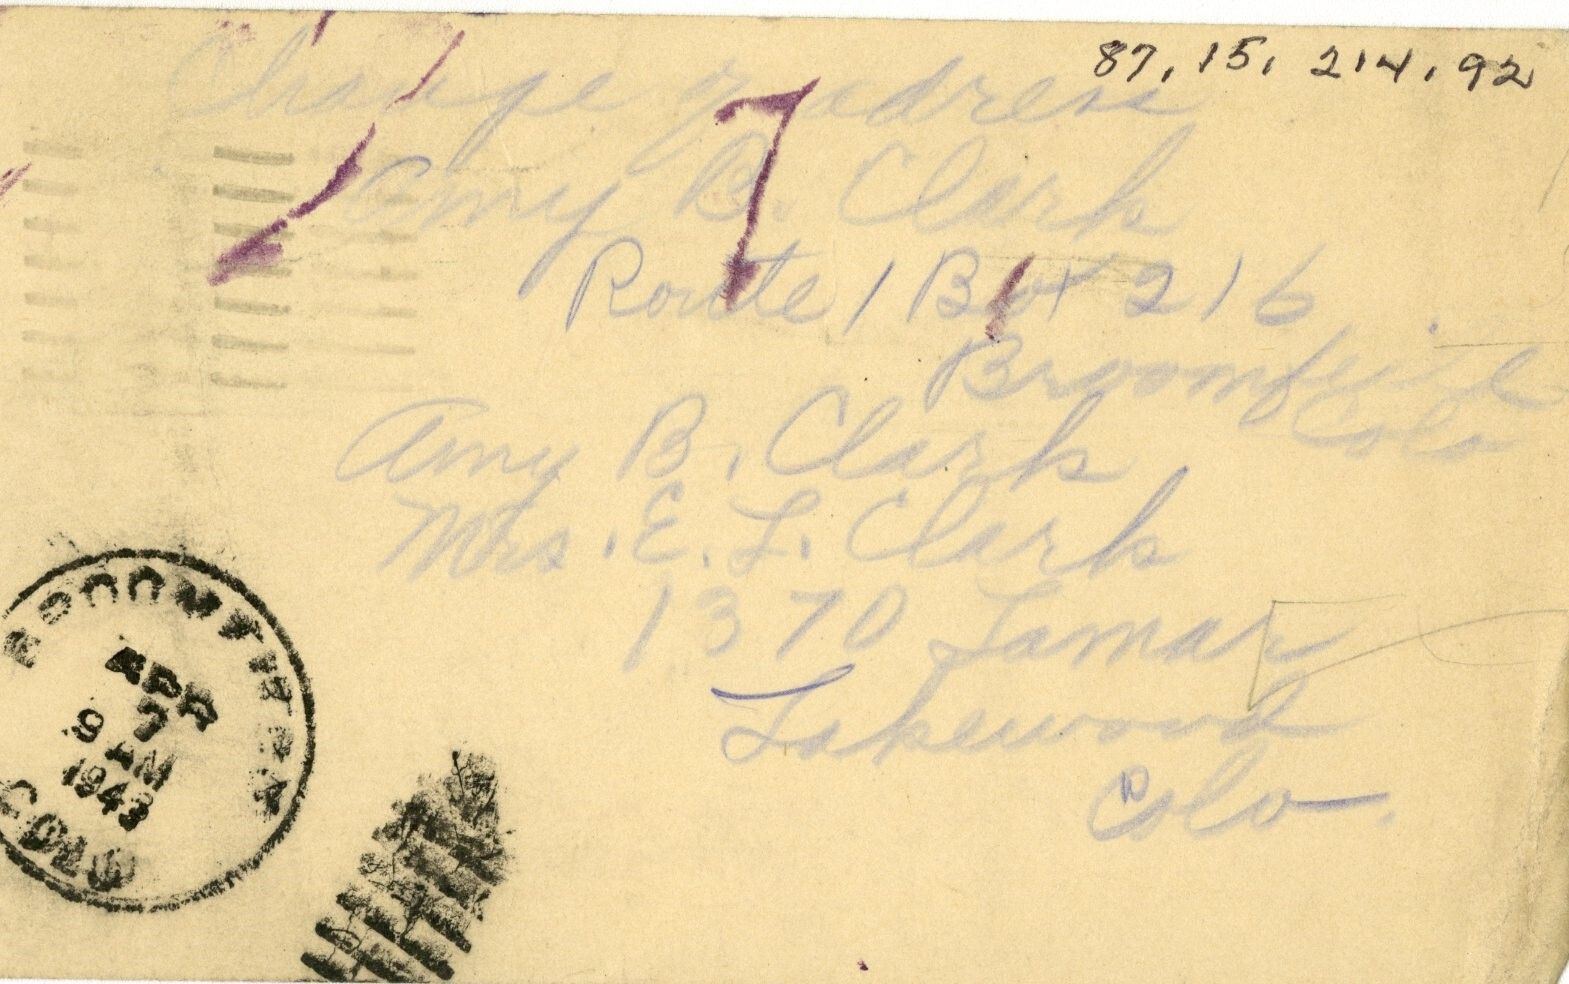 87.15.214.92
Change of adress
Amy B. Clark
Route 1 Box 216
Broomfield
Colo
Amy B. Clark
Mrs. E. L. Clark
1370 Lamar
Lakewood
Colo.
7
BROOMFIELD
APR
7
9 AM
1943
COLO